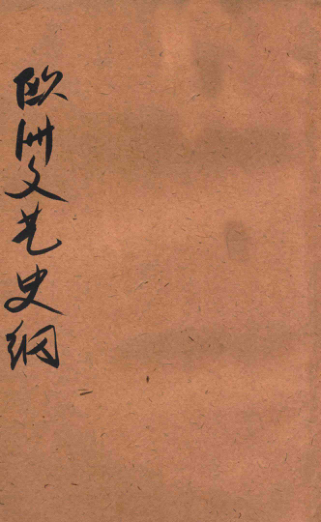 欧洲文艺史纲